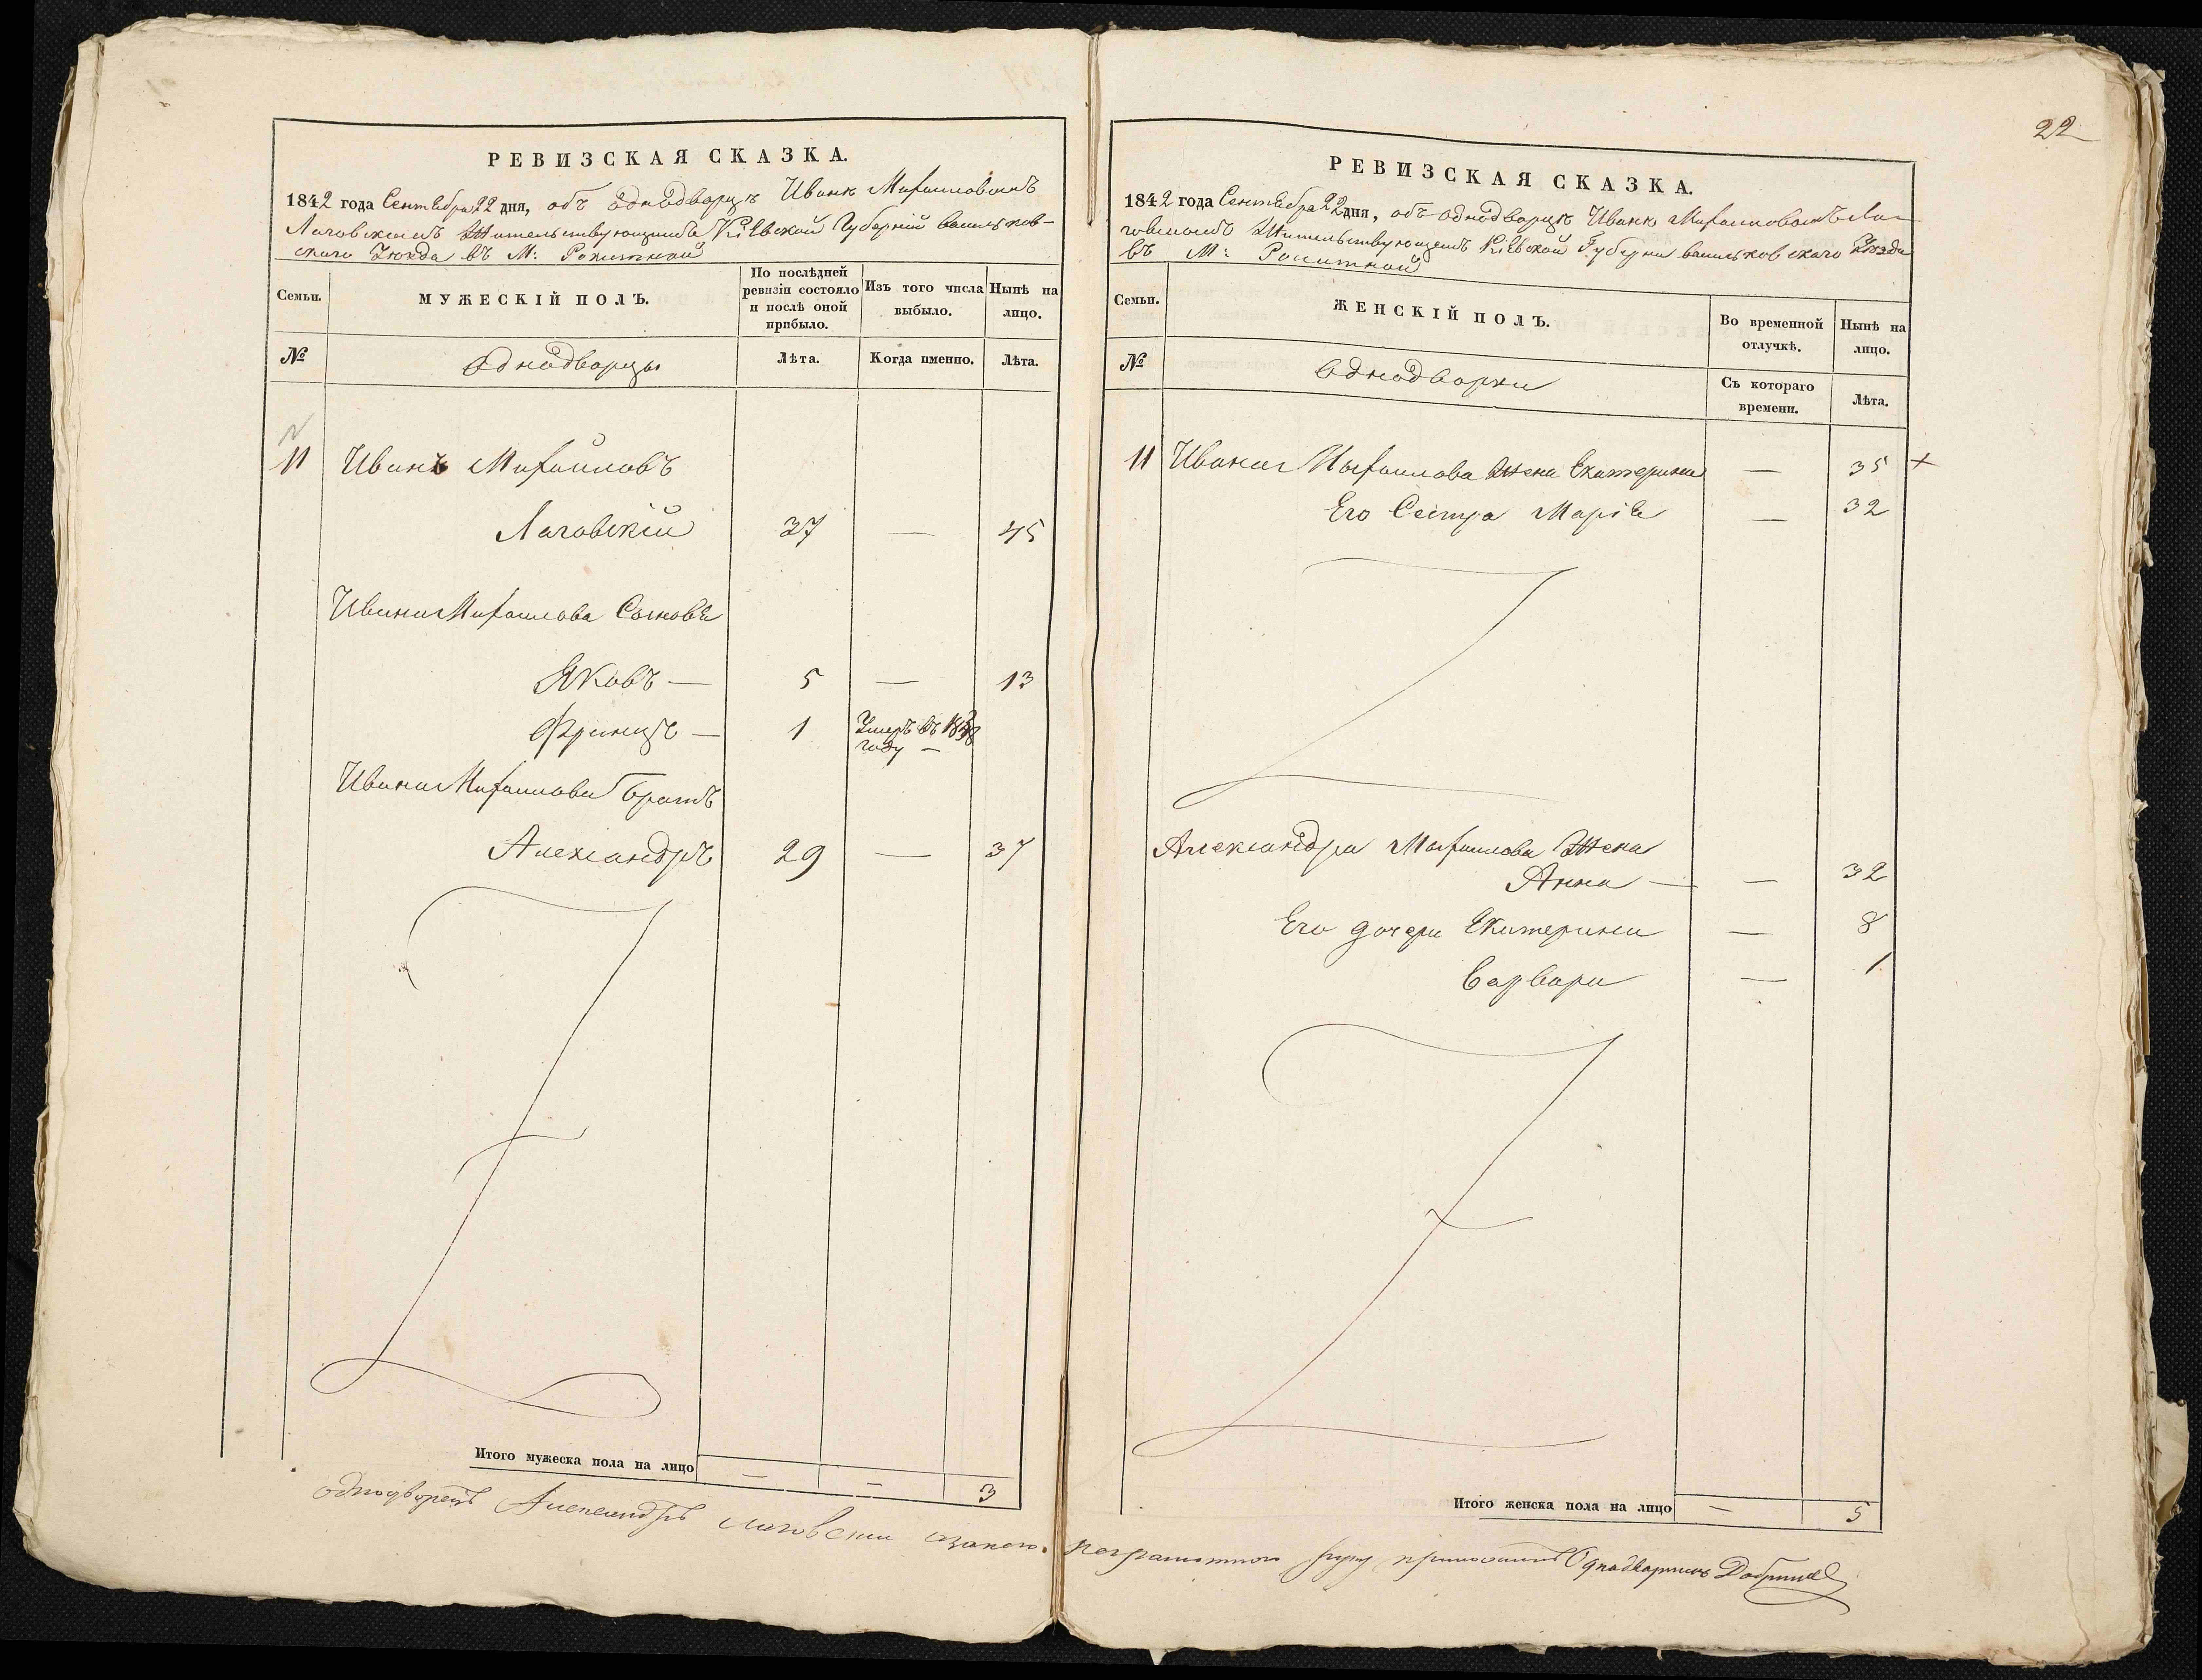 22
РЕВИЗСКАЯ СКАЗКА.
1842 года Сентября 22 дня, объ однодворцѣ Иванѣ Михайловомъ
Лаговскомъ Жительствующимъ Кіевской Губерніи Васильков-
скаго Уѣзда въ М: Рокитной
Семьи.
МУЖЕСКІЙ ПОЛЪ.
По послѣдней ревизіи состояло и послѣ оной прибыло.
Изъ того числа выбыло.
Нынѣ на лицо.
№
Однодворцы
Лѣта.
Когда именно.
Лѣта.
11 Иванъ Михайловъ
Лаговскій 37 — 45
Ивана Михайлова Сыновья
Яковъ — 5 — 13
Францъ — 1 Умеръ въ 1838
году —
Ивана Михайлова Братъ
Александръ 29 — 37
Итого мужеска пола на лицо — — 3
РЕВИЗСКАЯ СКАЗКА.
1842 года Сентября 22 дня, объ однодворцѣ Иванѣ Михайловомъ Ла-
говскомъ Жительствующемъ Кіевской Губерни Васильковскаго Уѣзда
въ М: Рокитной
Семьи.
ЖЕНСКІЙ ПОЛЪ.
Во временной отлучкѣ.
Нынѣ на лицо.
№
Однодворки
Съ котораго времени.
Лѣта.
11 Ивана Михайлова Жена Екатерина — 35 +
Его Сестра Марія — 32
Александра Михайлова Жена
Анна — — 32
Его дочери Екатерина — 8
Варвара — 1
Итого женска пола на лицо — 5
однодворецъ Александръ Лаговски
неграмотного руку приложилъ Однодворецъ